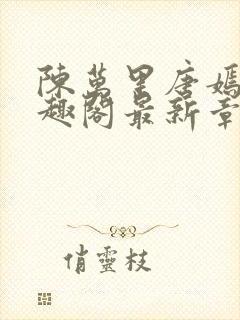 陳萬里唐嫣
趣閣最新章
俏靈枝